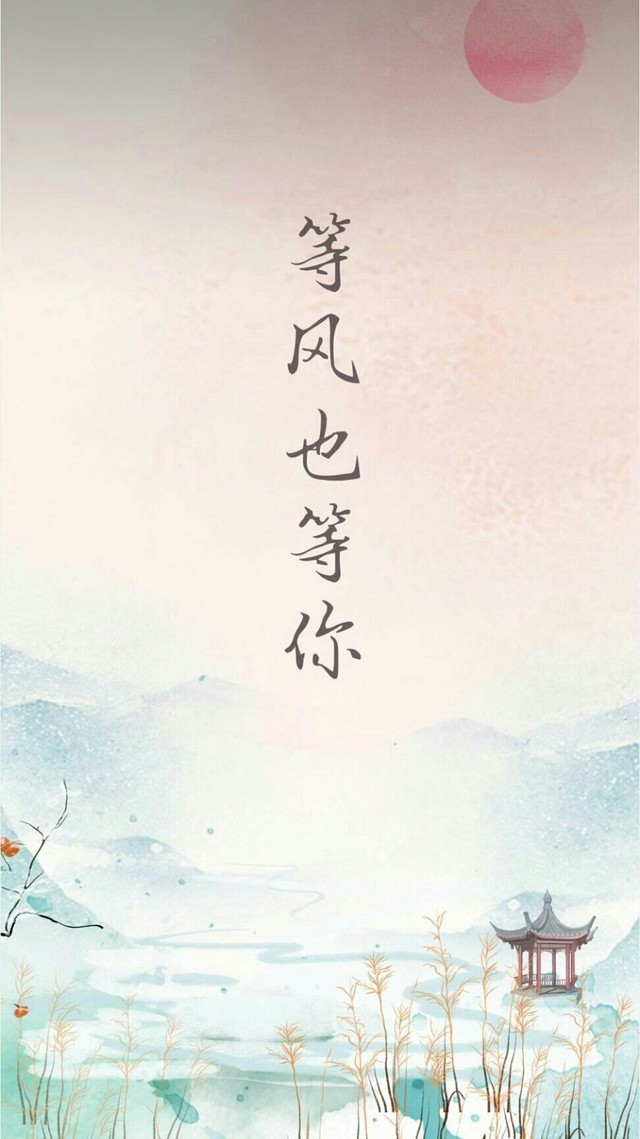 等风也等你